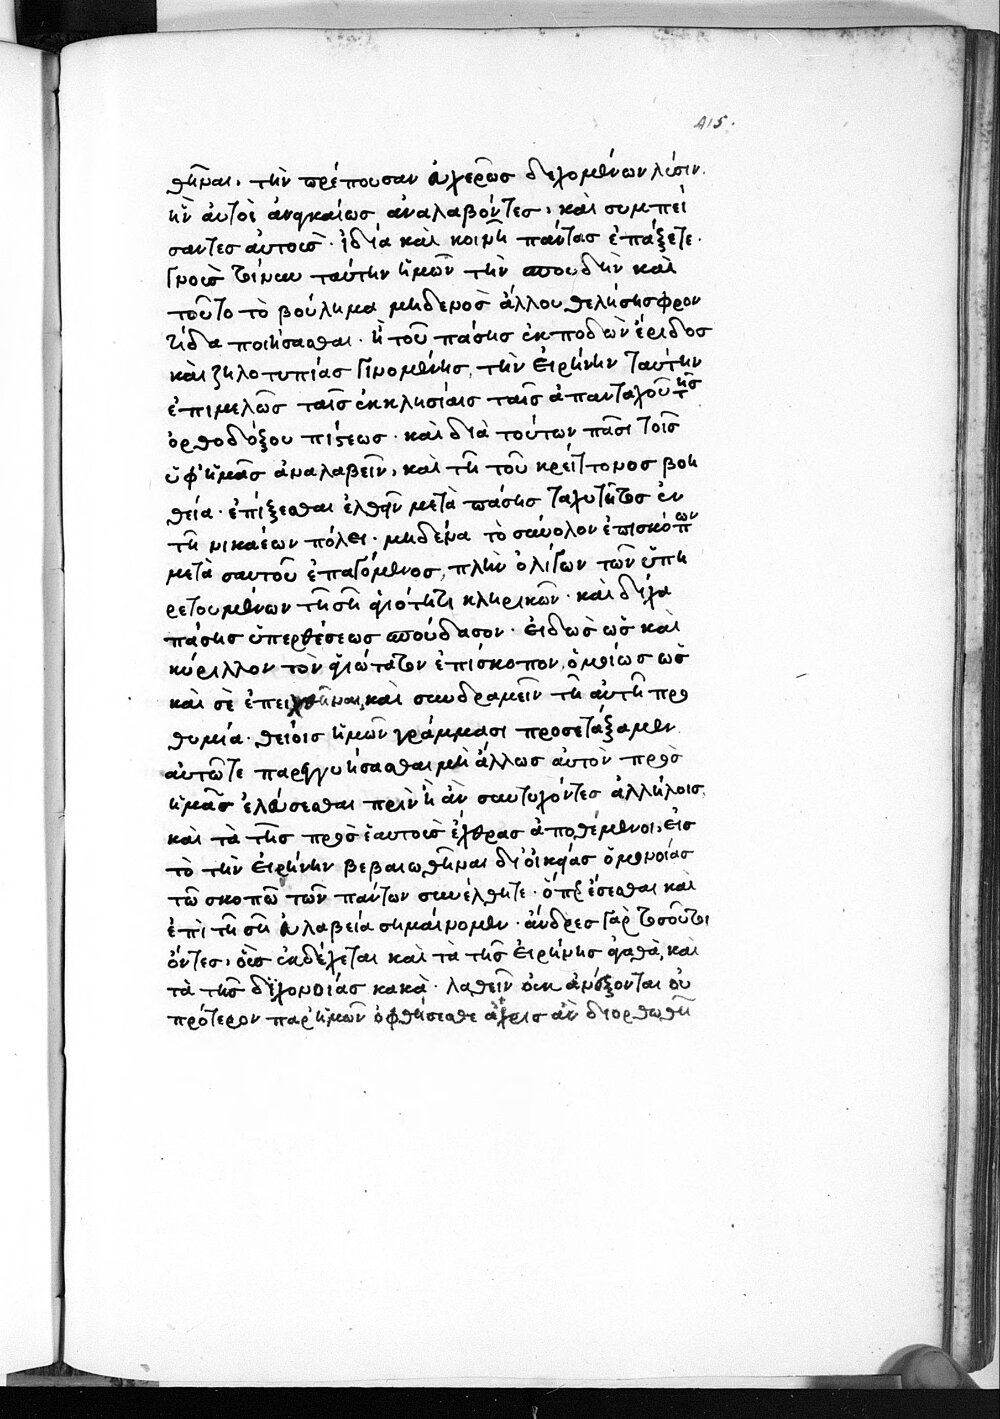 415.
θῆναι, τὴν πρέπουσαν εὐχερῶς δεχομένων λύσιν.
ἣν αὐτοὶ ἀναγκαίως ἀναλαβόντες, καὶ συμπεί
σαντες αὐτοὺς. ἰδία καὶ κοινῆ πάντας ἐπάξετε.
γνοὺς τοίνυν ταύτην ἡμῶν τὴν σπουδὴν καὶ
τοῦτο τὸ βούλημα μηδενὸς ἄλλου θελήσης φρον
τίδα ποιήσασθαι. ἢ τοῦ πάσης ἐκποδὼν ἔριδος
καὶ ζηλοτυπίας γινομένης, τὴν εἰρήνην ταύτην
ἐπιμελῶς ταῖς ἐκκλησίαις ταῖς ἁπανταχοῦ τῆς
ὀρθοδόξου πίστεως. καὶ διὰ τούτων πᾶσι τοῖς
ὑφ' ἡμᾶς ἀναλαβεῖν, καὶ τῆ τοῦ κρείττονος βοη
θεία. ἐπίξεσθαι ἐλθεῖν μετὰ πάσης ταχυτῆτος ἐν
τῆ νικαέων πόλει. μηδένα τὸ σύνολον ἐπισκόπων
μετὰ σαυτοῦ ἐπαγόμενος, πλὴν ὀλίγων τῶν ὑπη
ρετουμένων τῆ σῆ ἁγιότητι κληρικῶν. καὶ δίχα
πάσης ὑπερθέσεως σπούδασον. εἰδὼς ὡς καὶ
κύριλλον τὸν ἁγιώτατον ἐπίσκοπον, ὁμοίως ὡς
καὶ σὲ ἐπειχθῆναι, καὶ συνδραμεῖν τῆ αὐτῆ προ
θυμία. θείοις ἡμῶν γράμμασι προσετάξαμεν
αὐτῶ τε παρεγγυήσασθαι μὴ ἄλλως αὐτὸν πρὸς
ἡμᾶς ἐλεύσεσθαι πρὶν ἢ ἂν συντυχόντες ἀλλήλοις,
καὶ τὰ τῆς πρὸς ἑαυτοὺς ἔχθρας ἀποθέμενοι, εἰς
τὸ τὴν εἰρήνην βεβαιωθῆναι δι' οἰκείας ὁμονοίας
τῶ σκοπῶ τῶν πάντων συνέλθητε. ὅπερ ἔσεσθαι καὶ
ἐπὶ τῆ σῆ εὐλαβεία σημαίνομεν. ἄνδρες γὰρ τοσοῦτοι
ὄντες, οὓς ἐκδέχεται καὶ τὰ τῆς εἰρήνης ἀγαθὰ, καὶ
τὰ τῆς διχονοίας κακὰ. λαθεῖν οὐκ ἀνέξονται οὐ
πρότερον παρ' ἡμῶν ὀφθήσεσθε ἄχρις ἂν διορθωθῆ